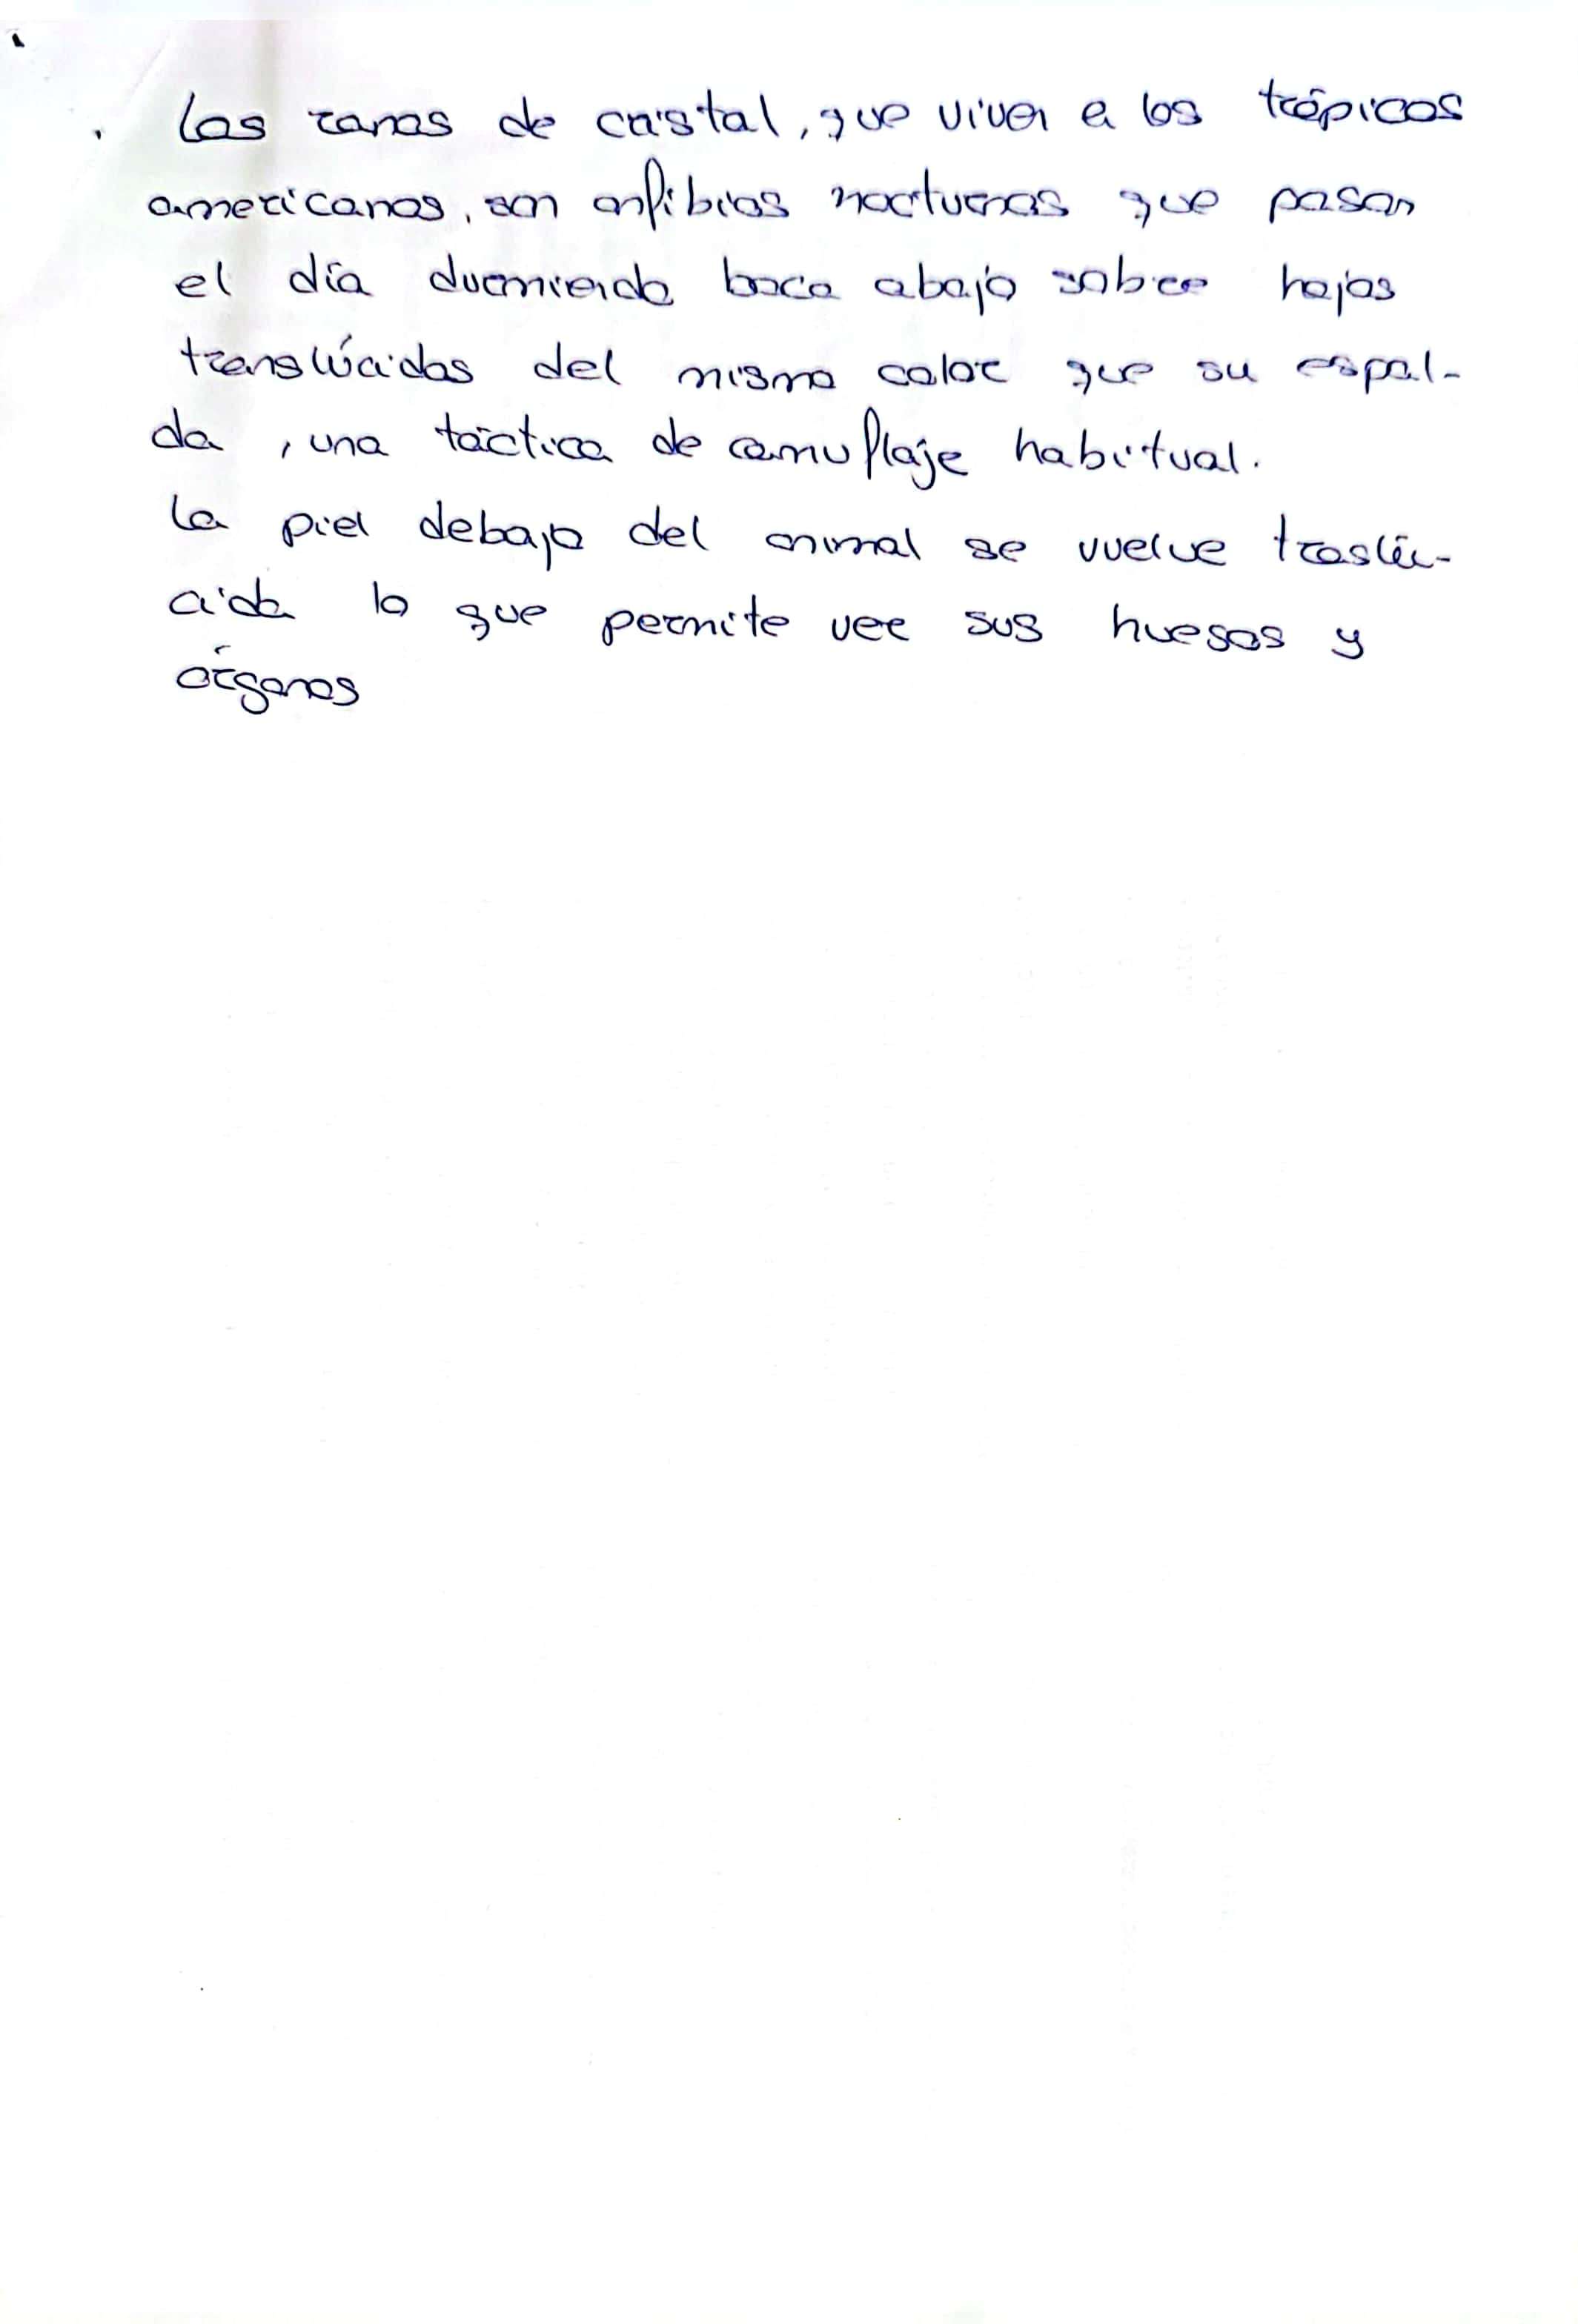 Las ranas de cristal, que viven a los trópicos
americanos, son anfibios nocturnos que pasan
el día durmiendo boca abajo sobre hojas
translúcidas del mismo color que su espal-
da, una táctica de camuflaje habitual.
La piel debajo del animal se vuelve traslú-
cida lo que permite ver sus huesos y
órganos